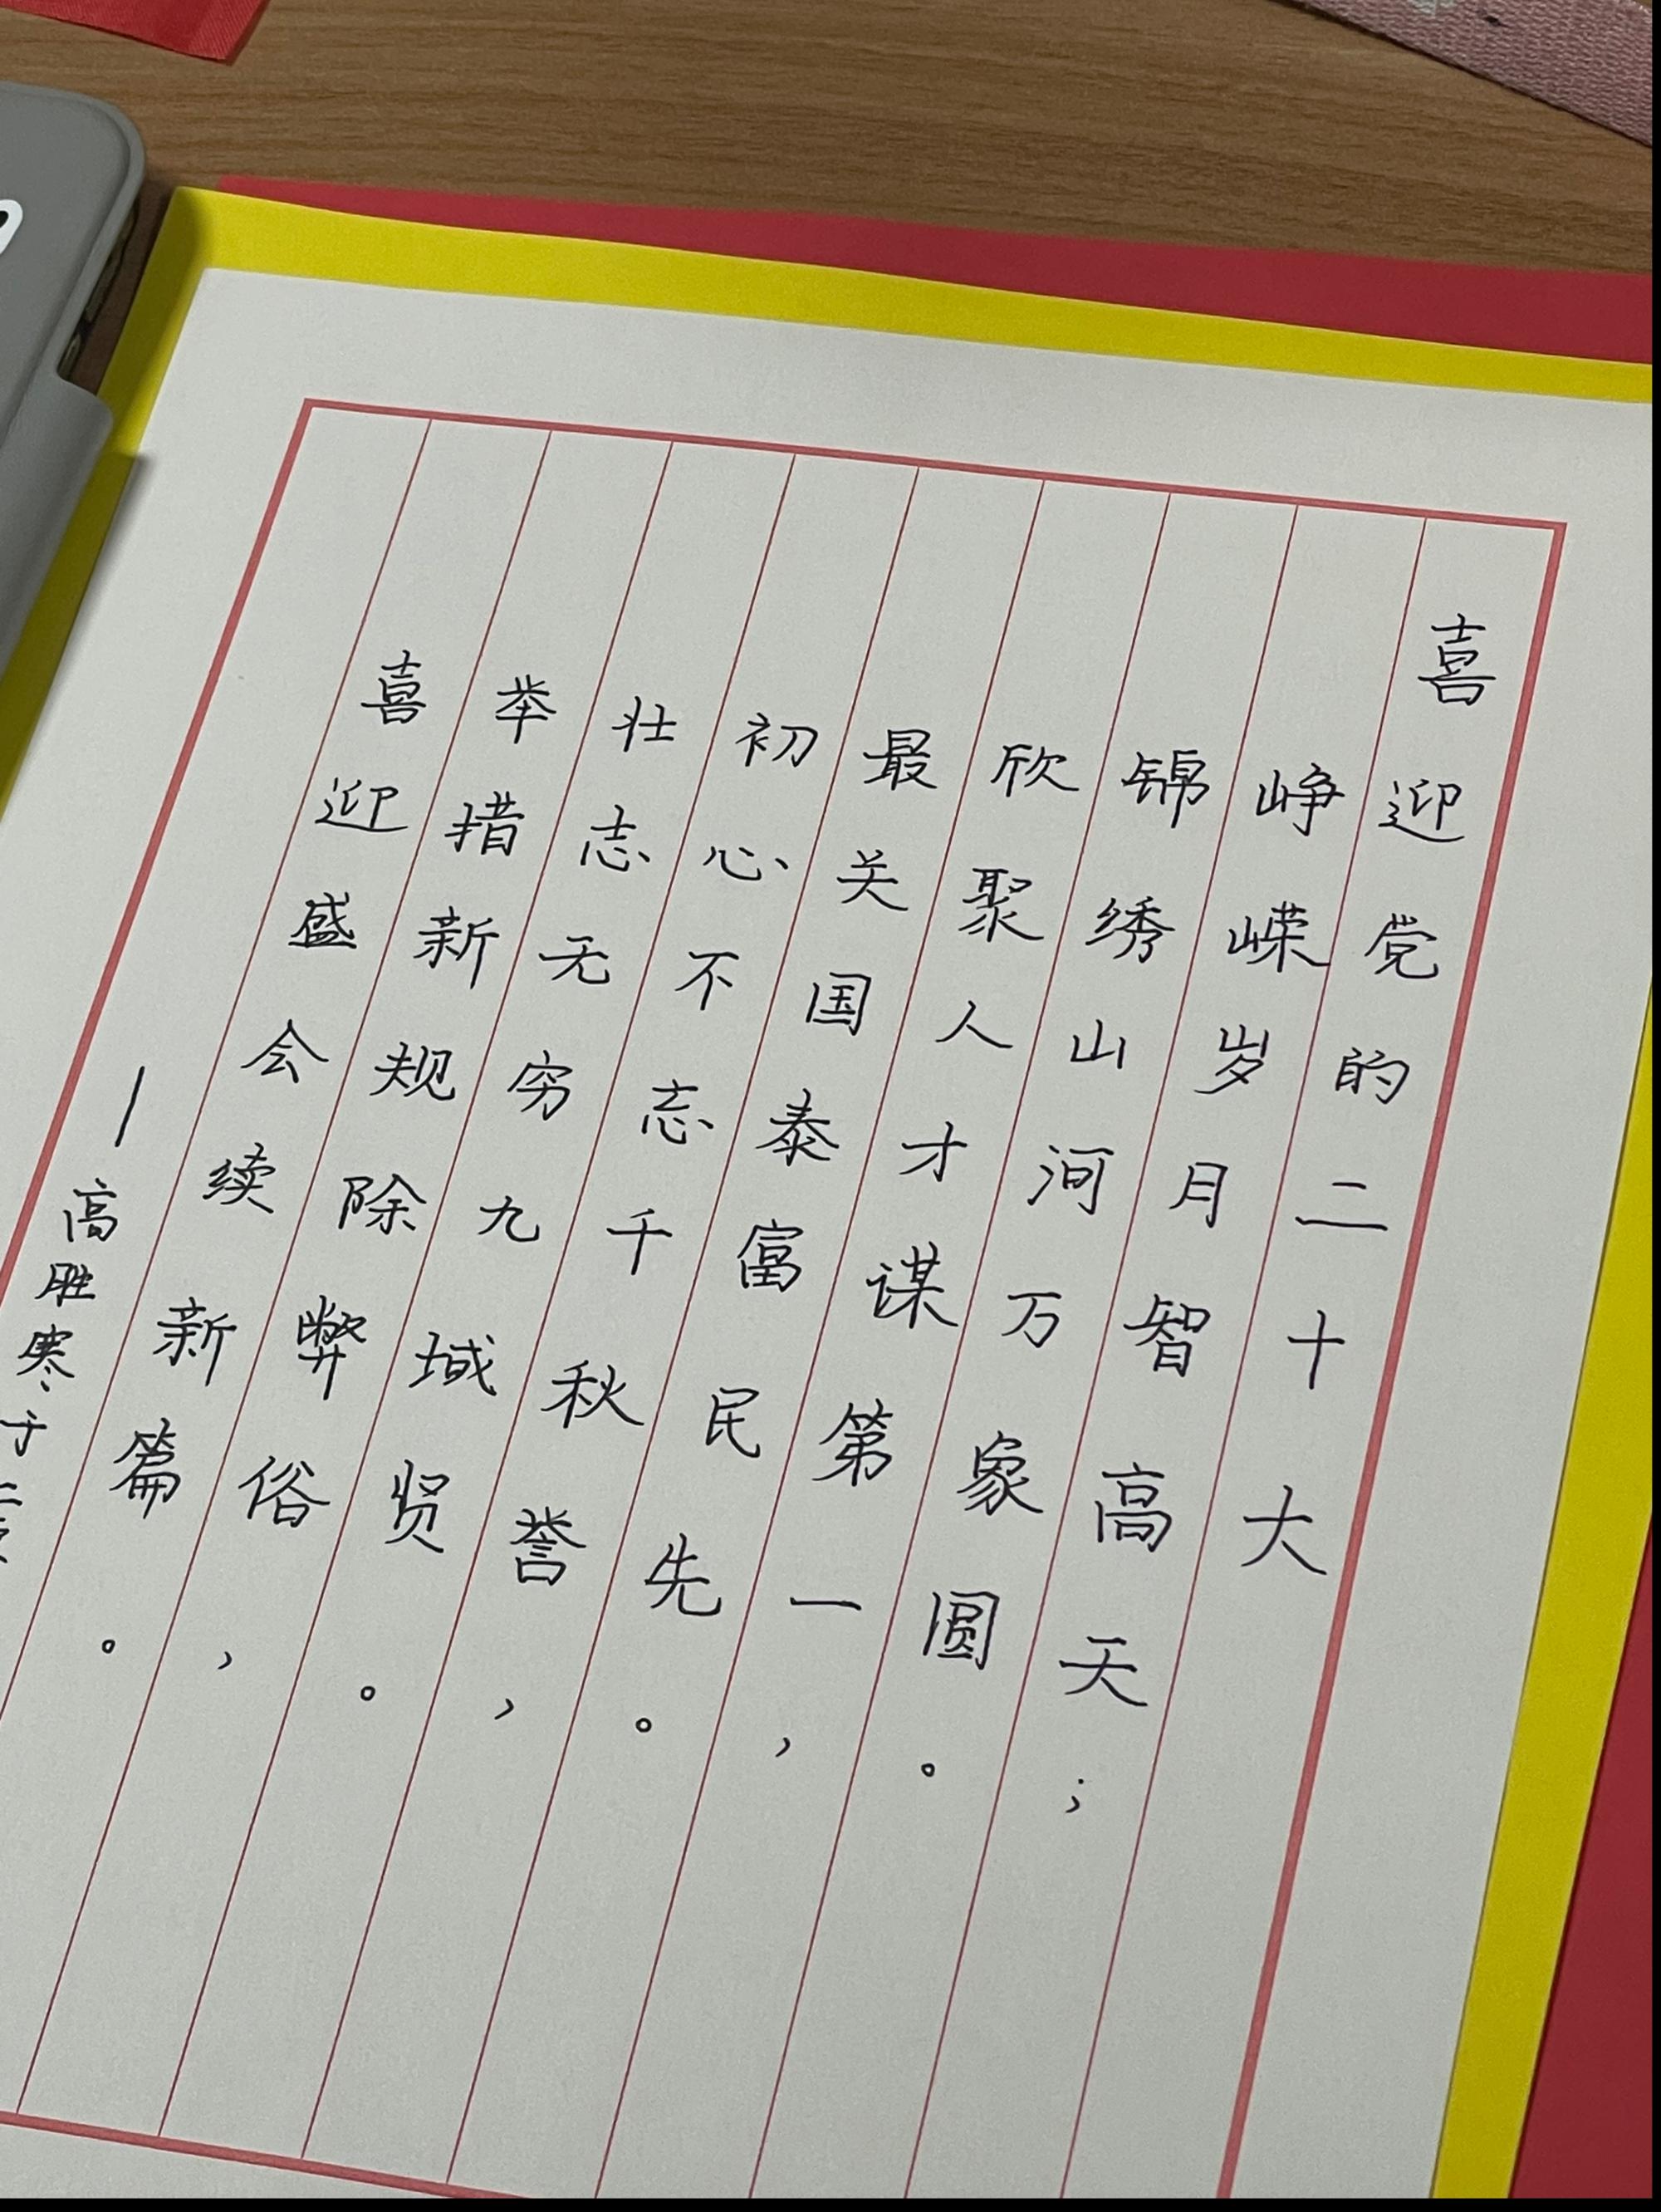 喜迎党的二十大
峥嵘岁月智高天；
锦绣山河万象圆。
欣聚人才谋第一，
最关国泰富民先。
初心不忘千秋誉，
壮志无穷九域贤。
举措新规除弊俗，
喜迎盛会续新篇。
—高胜寒于二